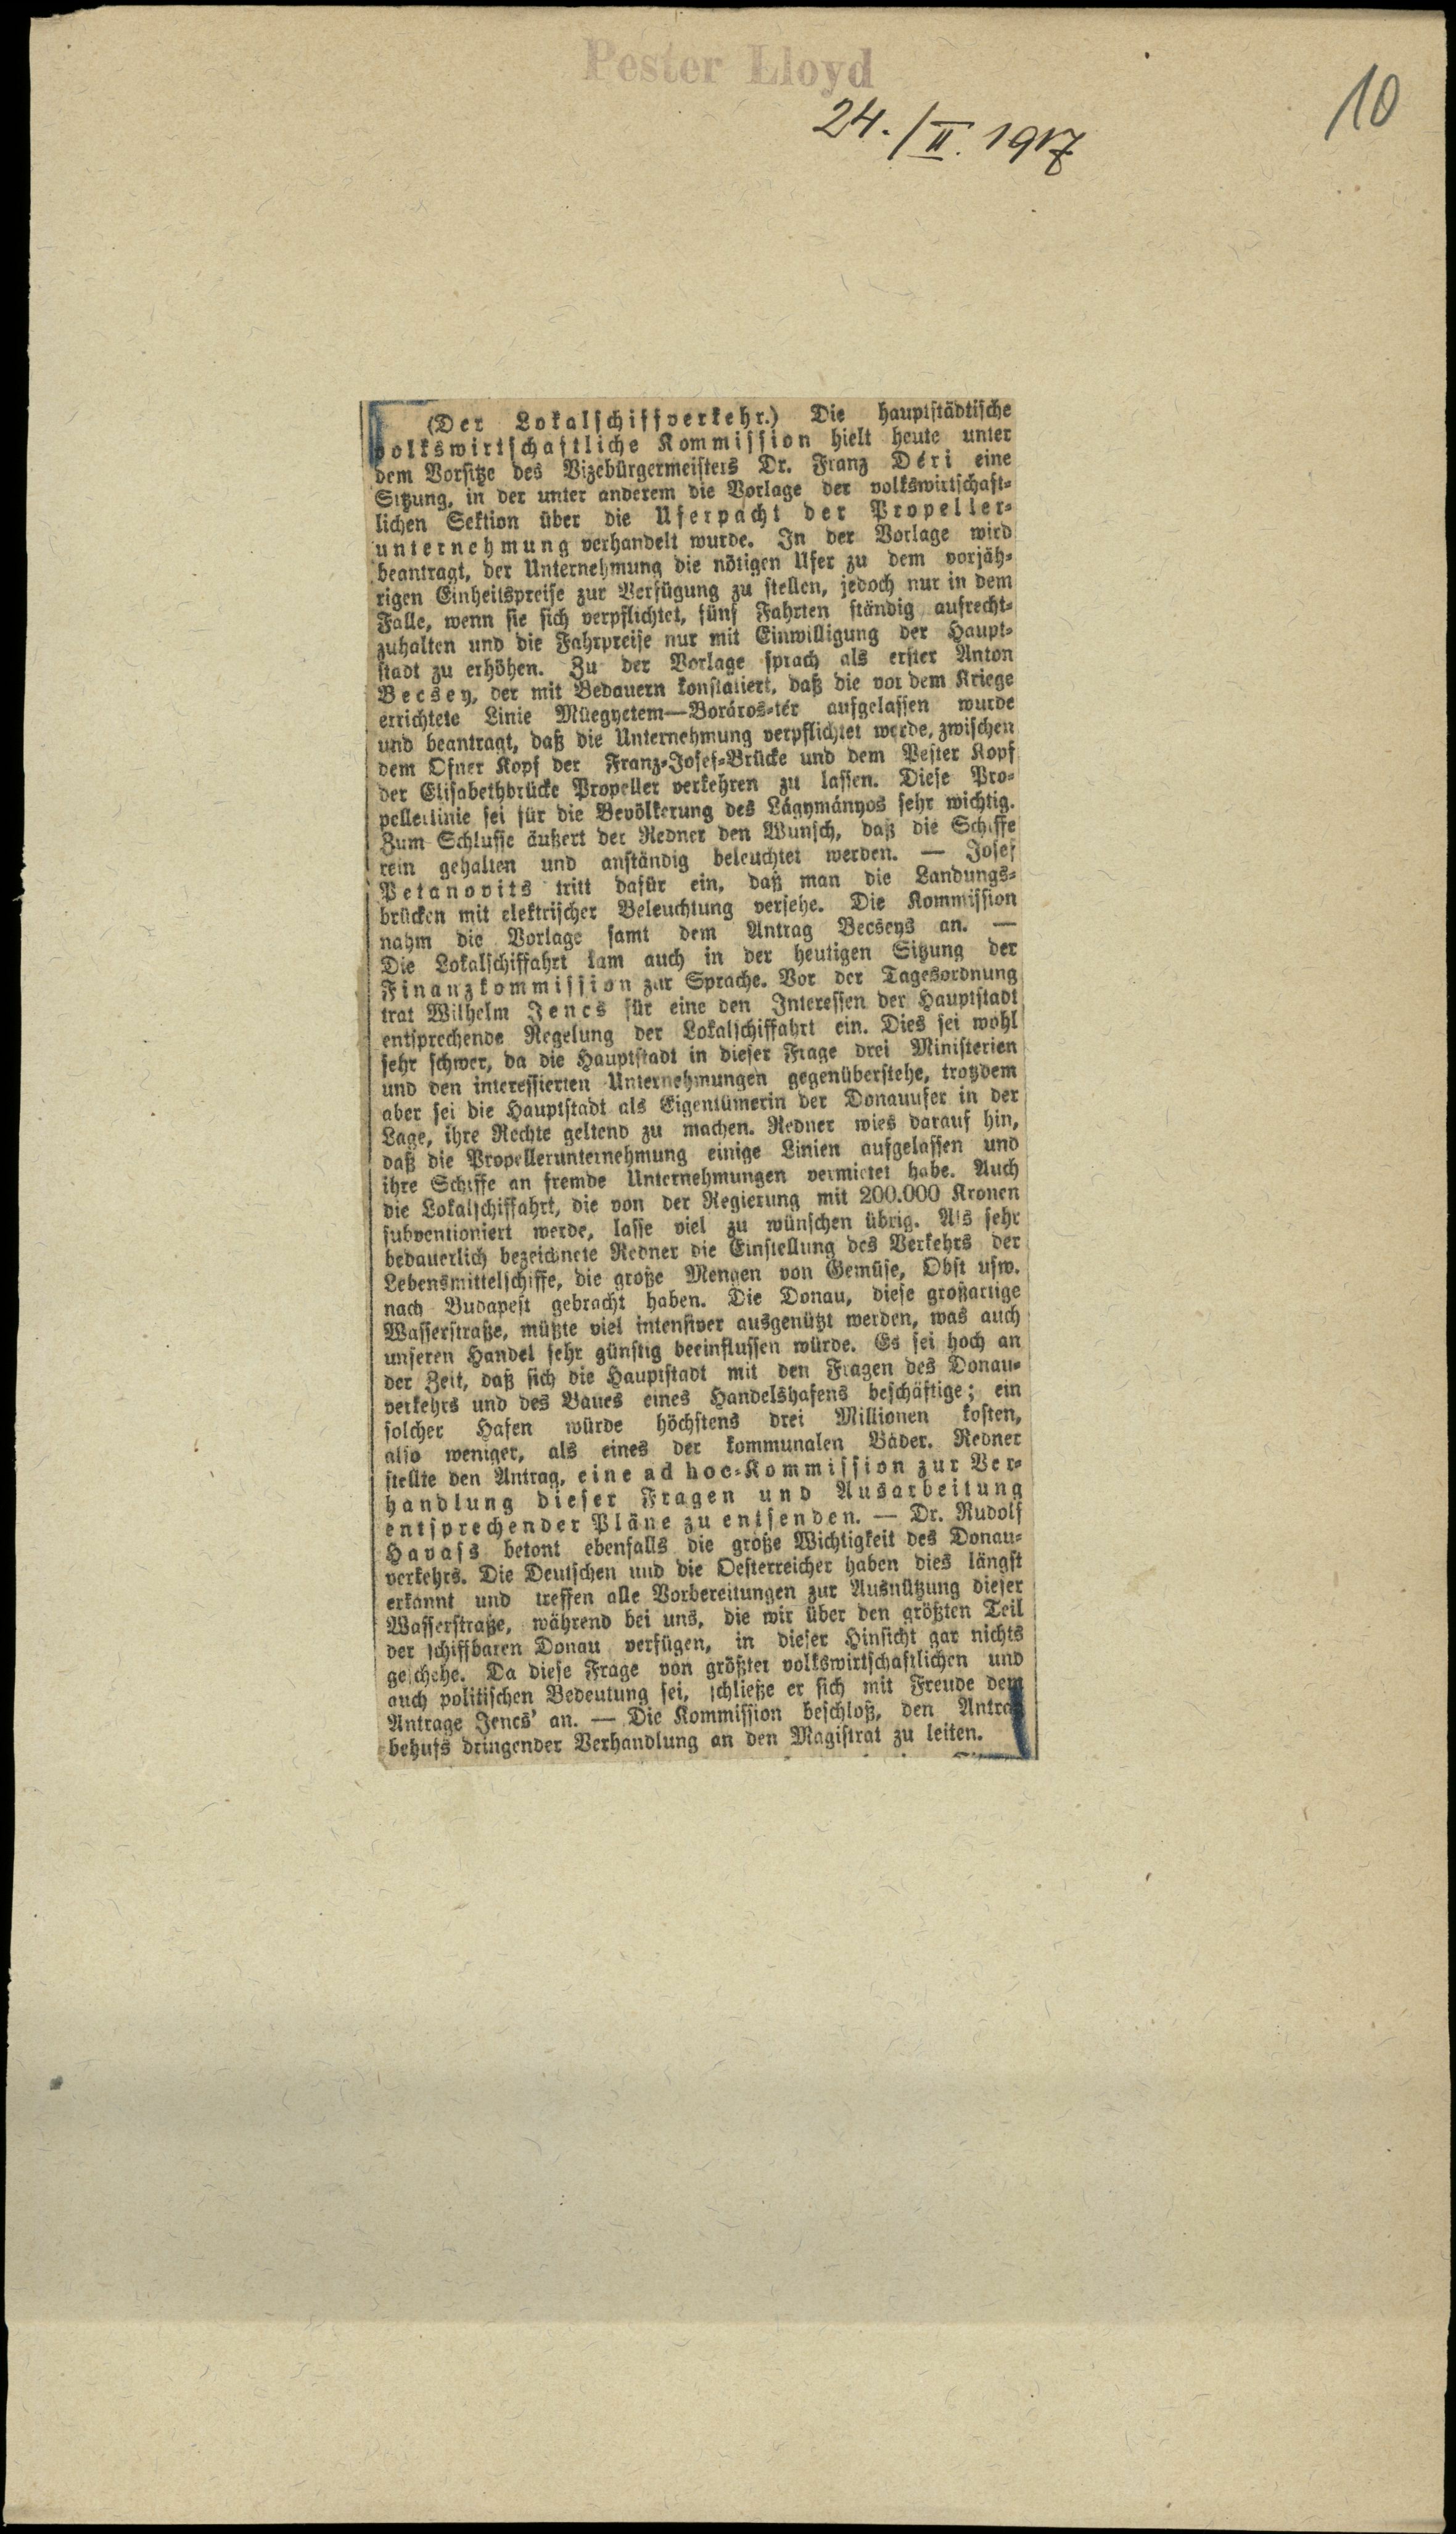 Pester Lloyd
10
24./II. 1917
(Der Lokalschiffverkehr.) Die hauptstädtische
volkswirtschaftliche Kommission hielt heute unter
dem Vorsitze des Vizebürgermeisters Dr. Franz Déri eine
Sitzung, in der unter anderem die Vorlage der volkswirtschaft-
lichen Sektion über die Uferpacht der Propeller-
unternehmung verhandelt wurde. In der Vorlage wird
beantragt, der Unternehmung die nötigen Ufer zu dem vorjäh-
rigen Einheitspreise zur Verfügung zu stellen, jedoch nur in dem
Falle, wenn sie sich verpflichtet, fünf Fahrten ständig aufrecht-
zuhalten und die Fahrpreise nur mit Einwilligung der Haupt-
stadt zu erhöhen. Zu der Vorlage sprach als erster Anton
Becsey, der mit Bedauern konstatiert, daß die vor dem Kriege
errichtete Linie Müegyetem—Boráros-tér aufgelassen wurde
und beantragt, daß die Unternehmung verpflichtet werde, zwischen
dem Ofner Kopf der Franz-Josef-Brücke und dem Pester Kopf
der Elisabethbrücke Propeller verkehren zu lassen. Diese Pro-
pellerlinie sei für die Bevölkerung des Lágymányos sehr wichtig.
Zum Schlusse äußert der Redner den Wunsch, daß die Schiffe
rein gehalten und anständig beleuchtet werden. — Josef
Petanovits tritt dafür ein, daß man die Landungs-
brücken mit elektrischer Beleuchtung versehe. Die Kommission
nahm die Vorlage samt dem Antrag Becseys an. —
Die Lokalschiffahrt kam auch in der heutigen Sitzung der
Finanzkommission zur Sprache. Vor der Tagesordnung
trat Wilhelm Jencs für eine den Interessen der Hauptstadt
entsprechende Regelung der Lokalschiffahrt ein. Dies sei wohl
sehr schwer, da die Hauptstadt in dieser Frage drei Ministerien
und den interessierten Unternehmungen gegenüberstehe, trotzdem
aber sei die Hauptstadt als Eigentümerin der Donauufer in der
Lage, ihre Rechte geltend zu machen. Redner wies darauf hin,
daß die Propellerunternehmung einige Linien aufgelassen und
ihre Schiffe an fremde Unternehmungen vermietet habe. Auch
die Lokalschiffahrt, die von der Regierung mit 200.000 Kronen
subventioniert werde, lasse viel zu wünschen übrig. Als sehr
bedauerlich bezeichnete Redner die Einstellung des Verkehrs der
Lebensmittelschiffe, die große Mengen von Gemüse, Obst usw.
nach Budapest gebracht haben. Die Donau, diese großartige
Wasserstraße, müßte viel intensiver ausgenützt werden, was auch
unseren Handel sehr günstig beeinflussen würde. Es sei hoch an
der Zeit, daß sich die Hauptstadt mit den Fragen des Donau-
verkehrs und des Baues eines Handelshafens beschäftige; ein
solcher Hafen würde höchstens drei Millionen kosten,
also weniger, als eines der kommunalen Bäder. Redner
stellte den Antrag, eine ad hoc-Kommission zur Ver-
handlung dieser Fragen und Ausarbeitung
entsprechender Pläne zu entsenden. — Dr. Rudolf
Havass betont ebenfalls die große Wichtigkeit des Donau-
verkehrs. Die Deutschen und die Oesterreicher haben dies längst
erkannt und treffen alle Vorbereitungen zur Ausnützung dieser
Wasserstraße, während bei uns, die wir über den größten Teil
der schiffbaren Donau verfügen, in dieser Hinsicht gar nichts
geschehe. Da diese Frage von größter volkswirtschaftlichen und
auch politischen Bedeutung sei, schließe er sich mit Freude dem
Antrage Jencs' an. — Die Kommission beschloß, den Antrag
behufs dringender Verhandlung an den Magistrat zu leiten.